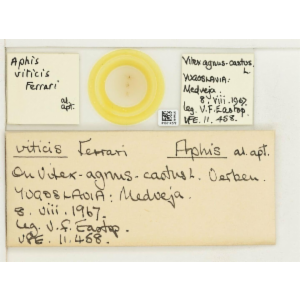 Aphis
viticis
Ferrari
al.
apt.
Vitex agnus-castus
L.
YUGOSLAVIA:
Medveja.
8. viii. 1967.
leg. V.F. Eastop.
VFE. 11.458.
viticis Ferrari Aphis al. apt.
On Vitex-agnus-castus L. Verben.
YUGOSLAVIA: Medveja.
8. viii. 1967.
leg. V.F. Eastop.
VFE. 11.458.